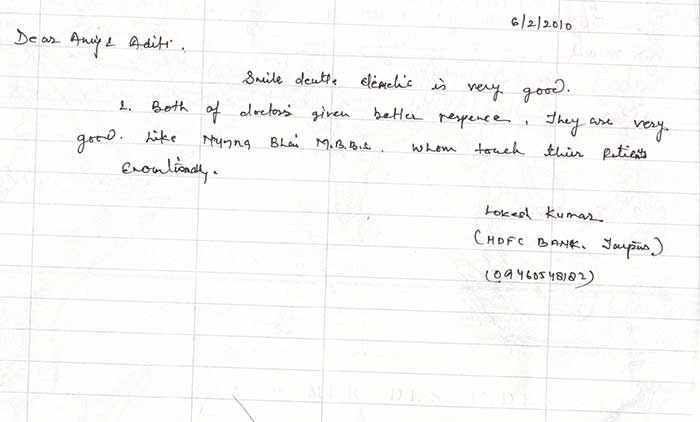 6/2/2010
Dear Anuj & Aditi.
Smile dental clinic is very good.
2. Both of doctors given better responce. They are very
good. Like Munna Bhai M.B.B.S. whom touch their patients
emotionally.
Lokesh Kumar
(HDFC BANK. Jaipur)
(09460548182)